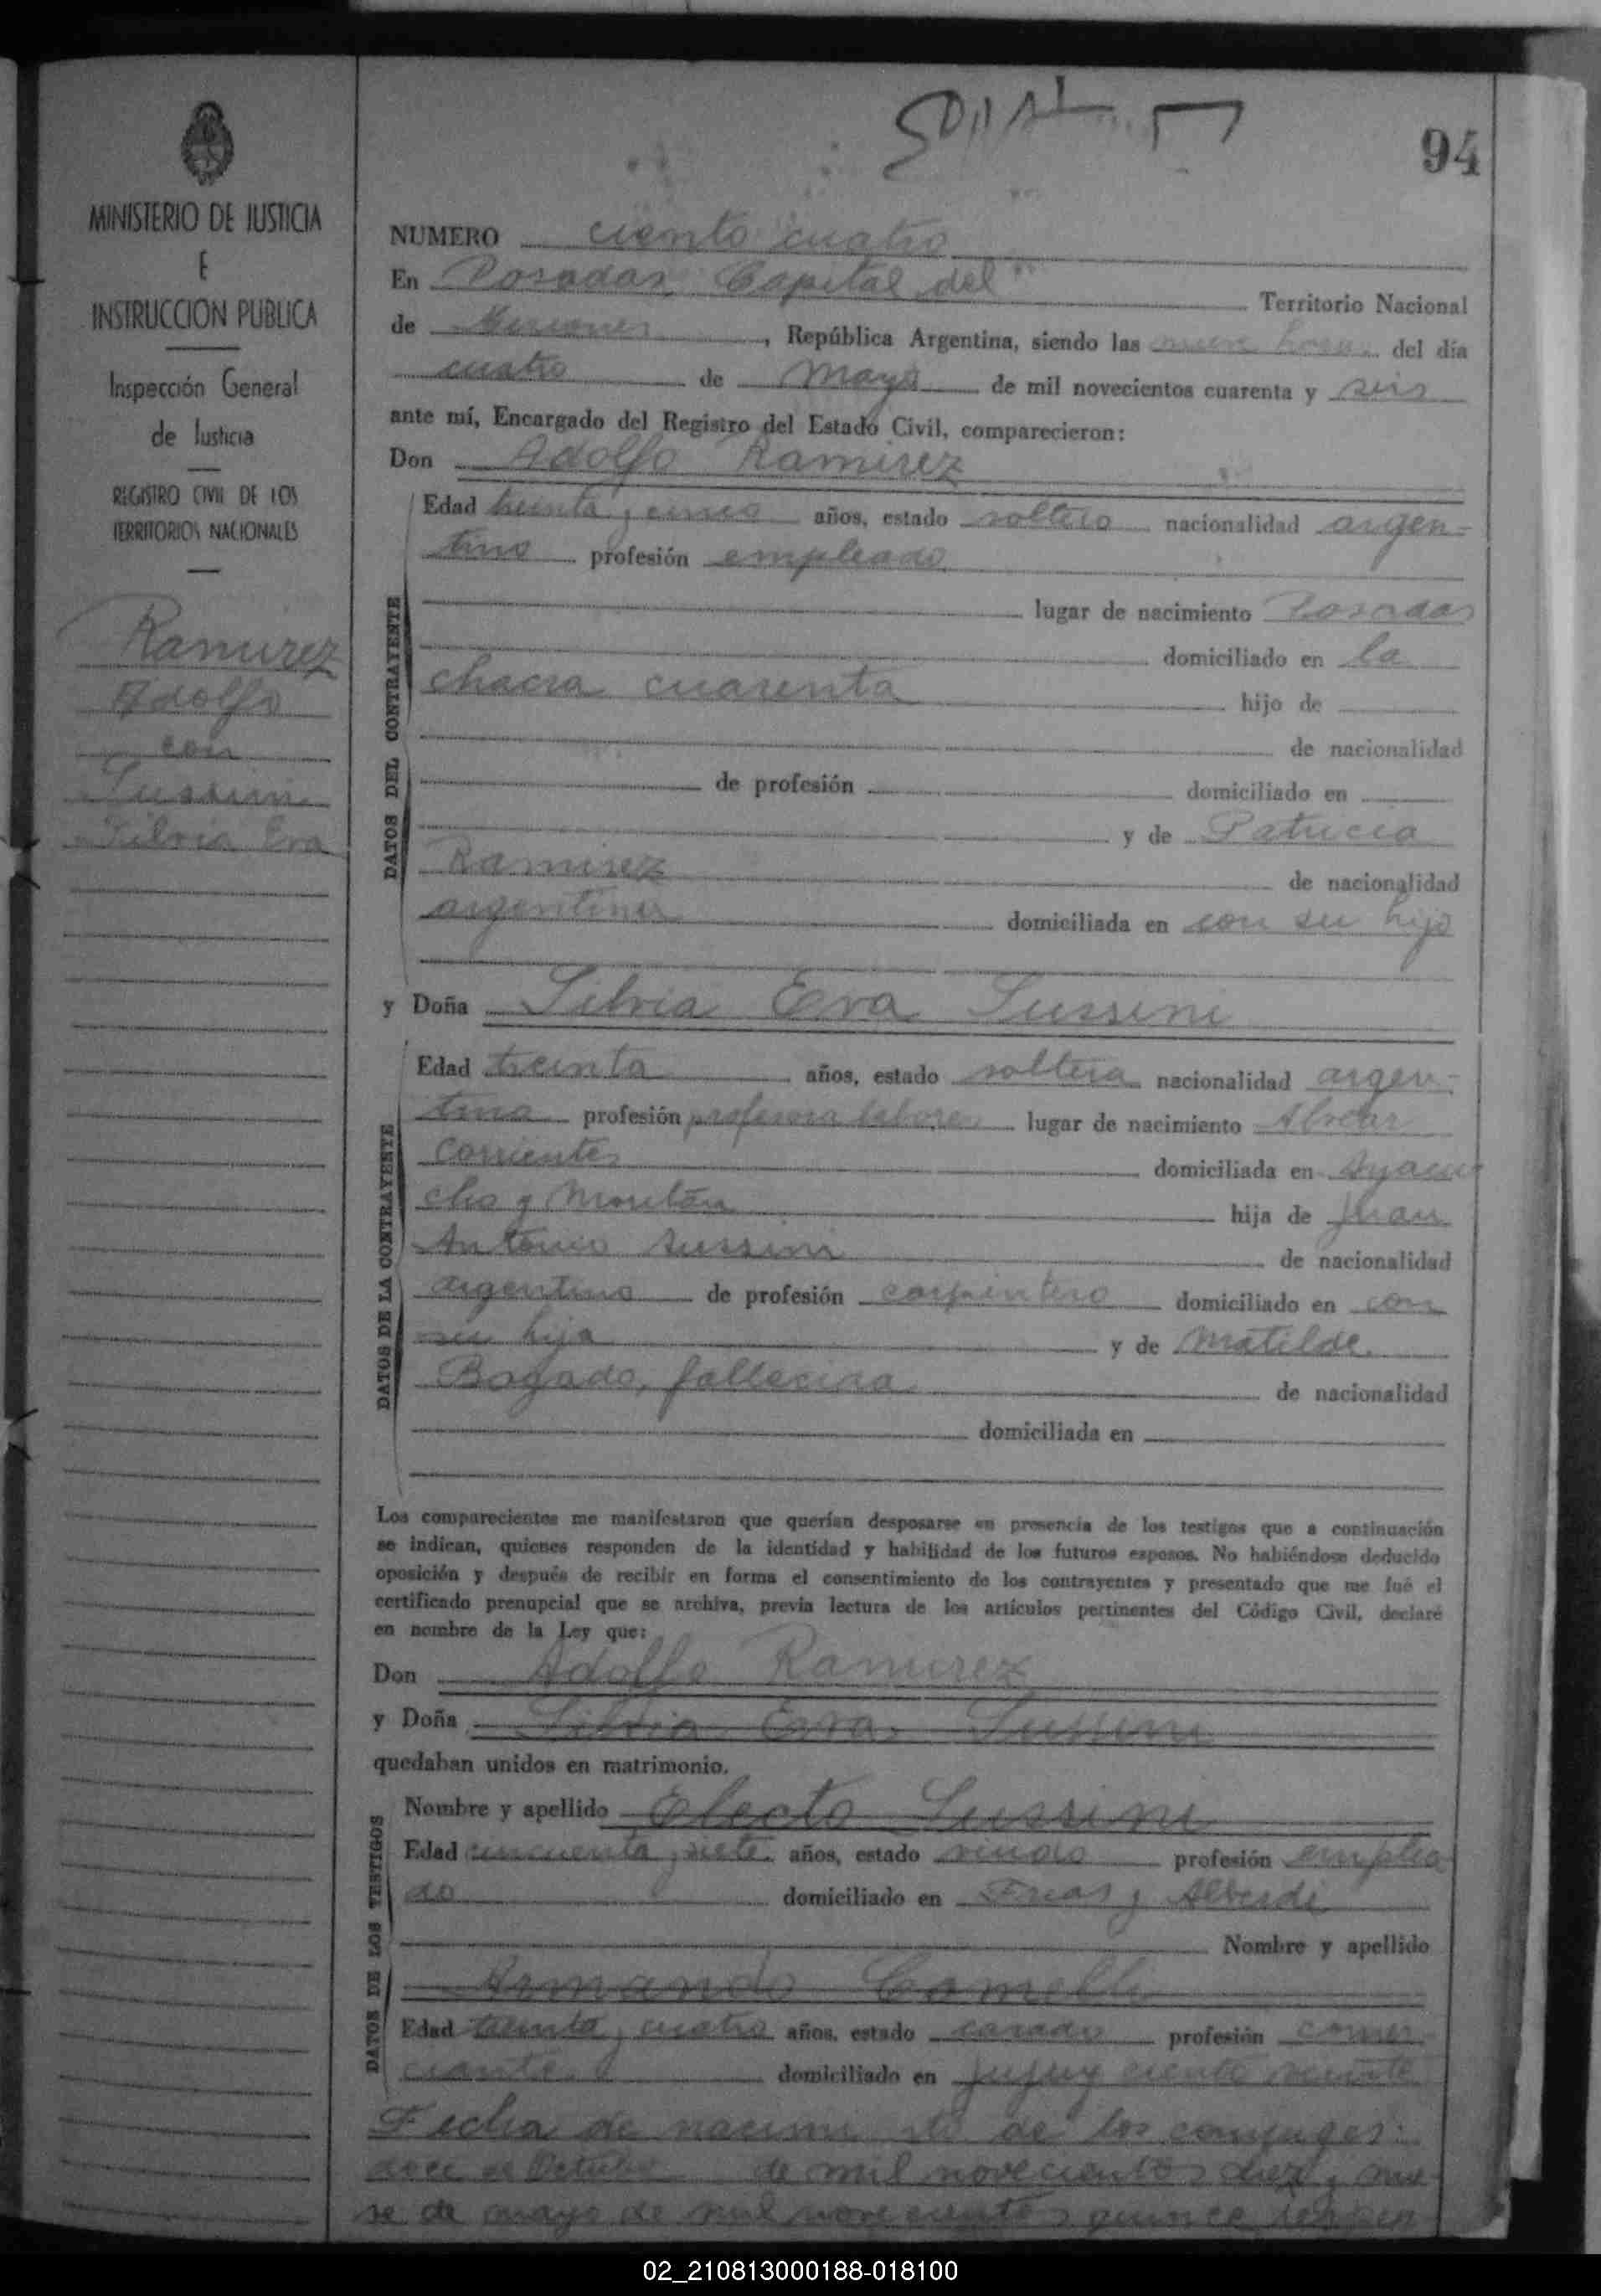 94
MINISTERIO DE JUSTICIA
E
INSTRUCCION PUBLICA
Inspección General
de Justicia
REGISTRO CIVIL DE LOS
TERRITORIOS NACIONALES
Ramirez
Adolfo
con
Sussini
Silvia Eva
NUMERO ciento cuatro
En Posadas Capital del Territorio Nacional
de Misiones, República Argentina, siendo las nueve horas del día
cuatro de Mayo de mil novecientos cuarenta y seis
ante mí, Encargado del Registro del Estado Civil, comparecieron:
Don Adolfo Ramirez
DATOS DEL CONTRAYENTE
Edad treinta y cinco años, estado soltero nacionalidad argen-
tino profesión empleado
lugar de nacimiento Posadas
domiciliado en la
chacra cuarenta hijo de
de nacionalidad
de profesión domiciliado en
y de Patricia
Ramirez de nacionalidad
argentina domiciliada en con su hijo
y Doña Silvia Eva Sussini
DATOS DE LA CONTRAYENTE
Edad treinta años, estado soltera nacionalidad argen-
tina profesión profesora labores lugar de nacimiento Alvear
Corrientes domiciliada en Ayacu
cho y hija de Juan
Antonio Sussini de nacionalidad
argentino de profesión carpintero domiciliado en con
su hija y de Matilde
Bogado, fallecida de nacionalidad
domiciliada en
Los comparecientes me manifestaron que querían desposarse en presencia de los testigos que a continuación
se indican, quienes responden de la identidad y habilidad de los futuros esposos. No habiéndose deducido
oposición y después de recibir en forma el consentimiento de los contrayentes y presentado que me fué el
certificado prenupcial que se archiva, previa lectura de los artículos pertinentes del Código Civil, declaré
en nombre de la Ley que:
Don Adolfo Ramirez
y Doña Silvia Eva Sussini
quedaban unidos en matrimonio.
DATOS DE LOS TESTIGOS
Nombre y apellido Electo Sussini
Edad cincuenta y siete años, estado viudo profesión emplea
do domiciliado en Frias y Alberdi
Nombre y apellido
Armando Comelli
Edad treinta y cuatro años, estado casado profesión comer-
ciante domiciliado en Jujuy ciento veinte
Fecha de nacimi nto de los conyuges:
doce de Octubre de mil novecientos diez y nue-
ve de mayo de mil novecientos quince
02_210813000188-018100